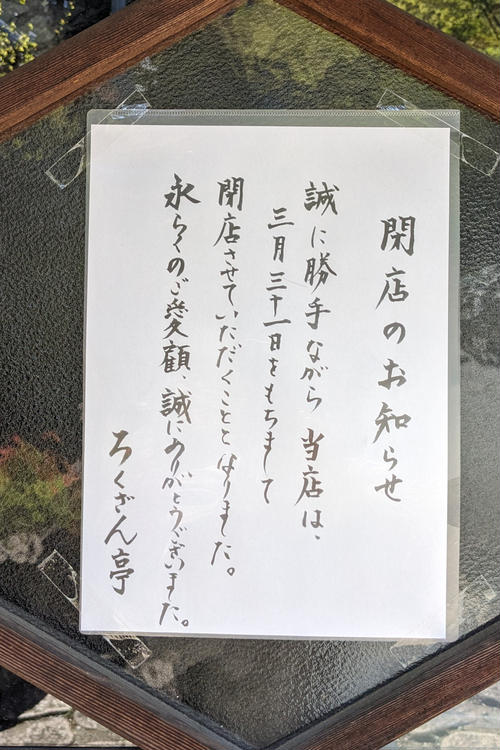 閉店のお知らせ
誠に勝手ながら当店は、
三月三十一日をもちまして
閉店させていただくこととなりました。
永らくのご愛顧、誠にありがとうございました。
ろくざん亭